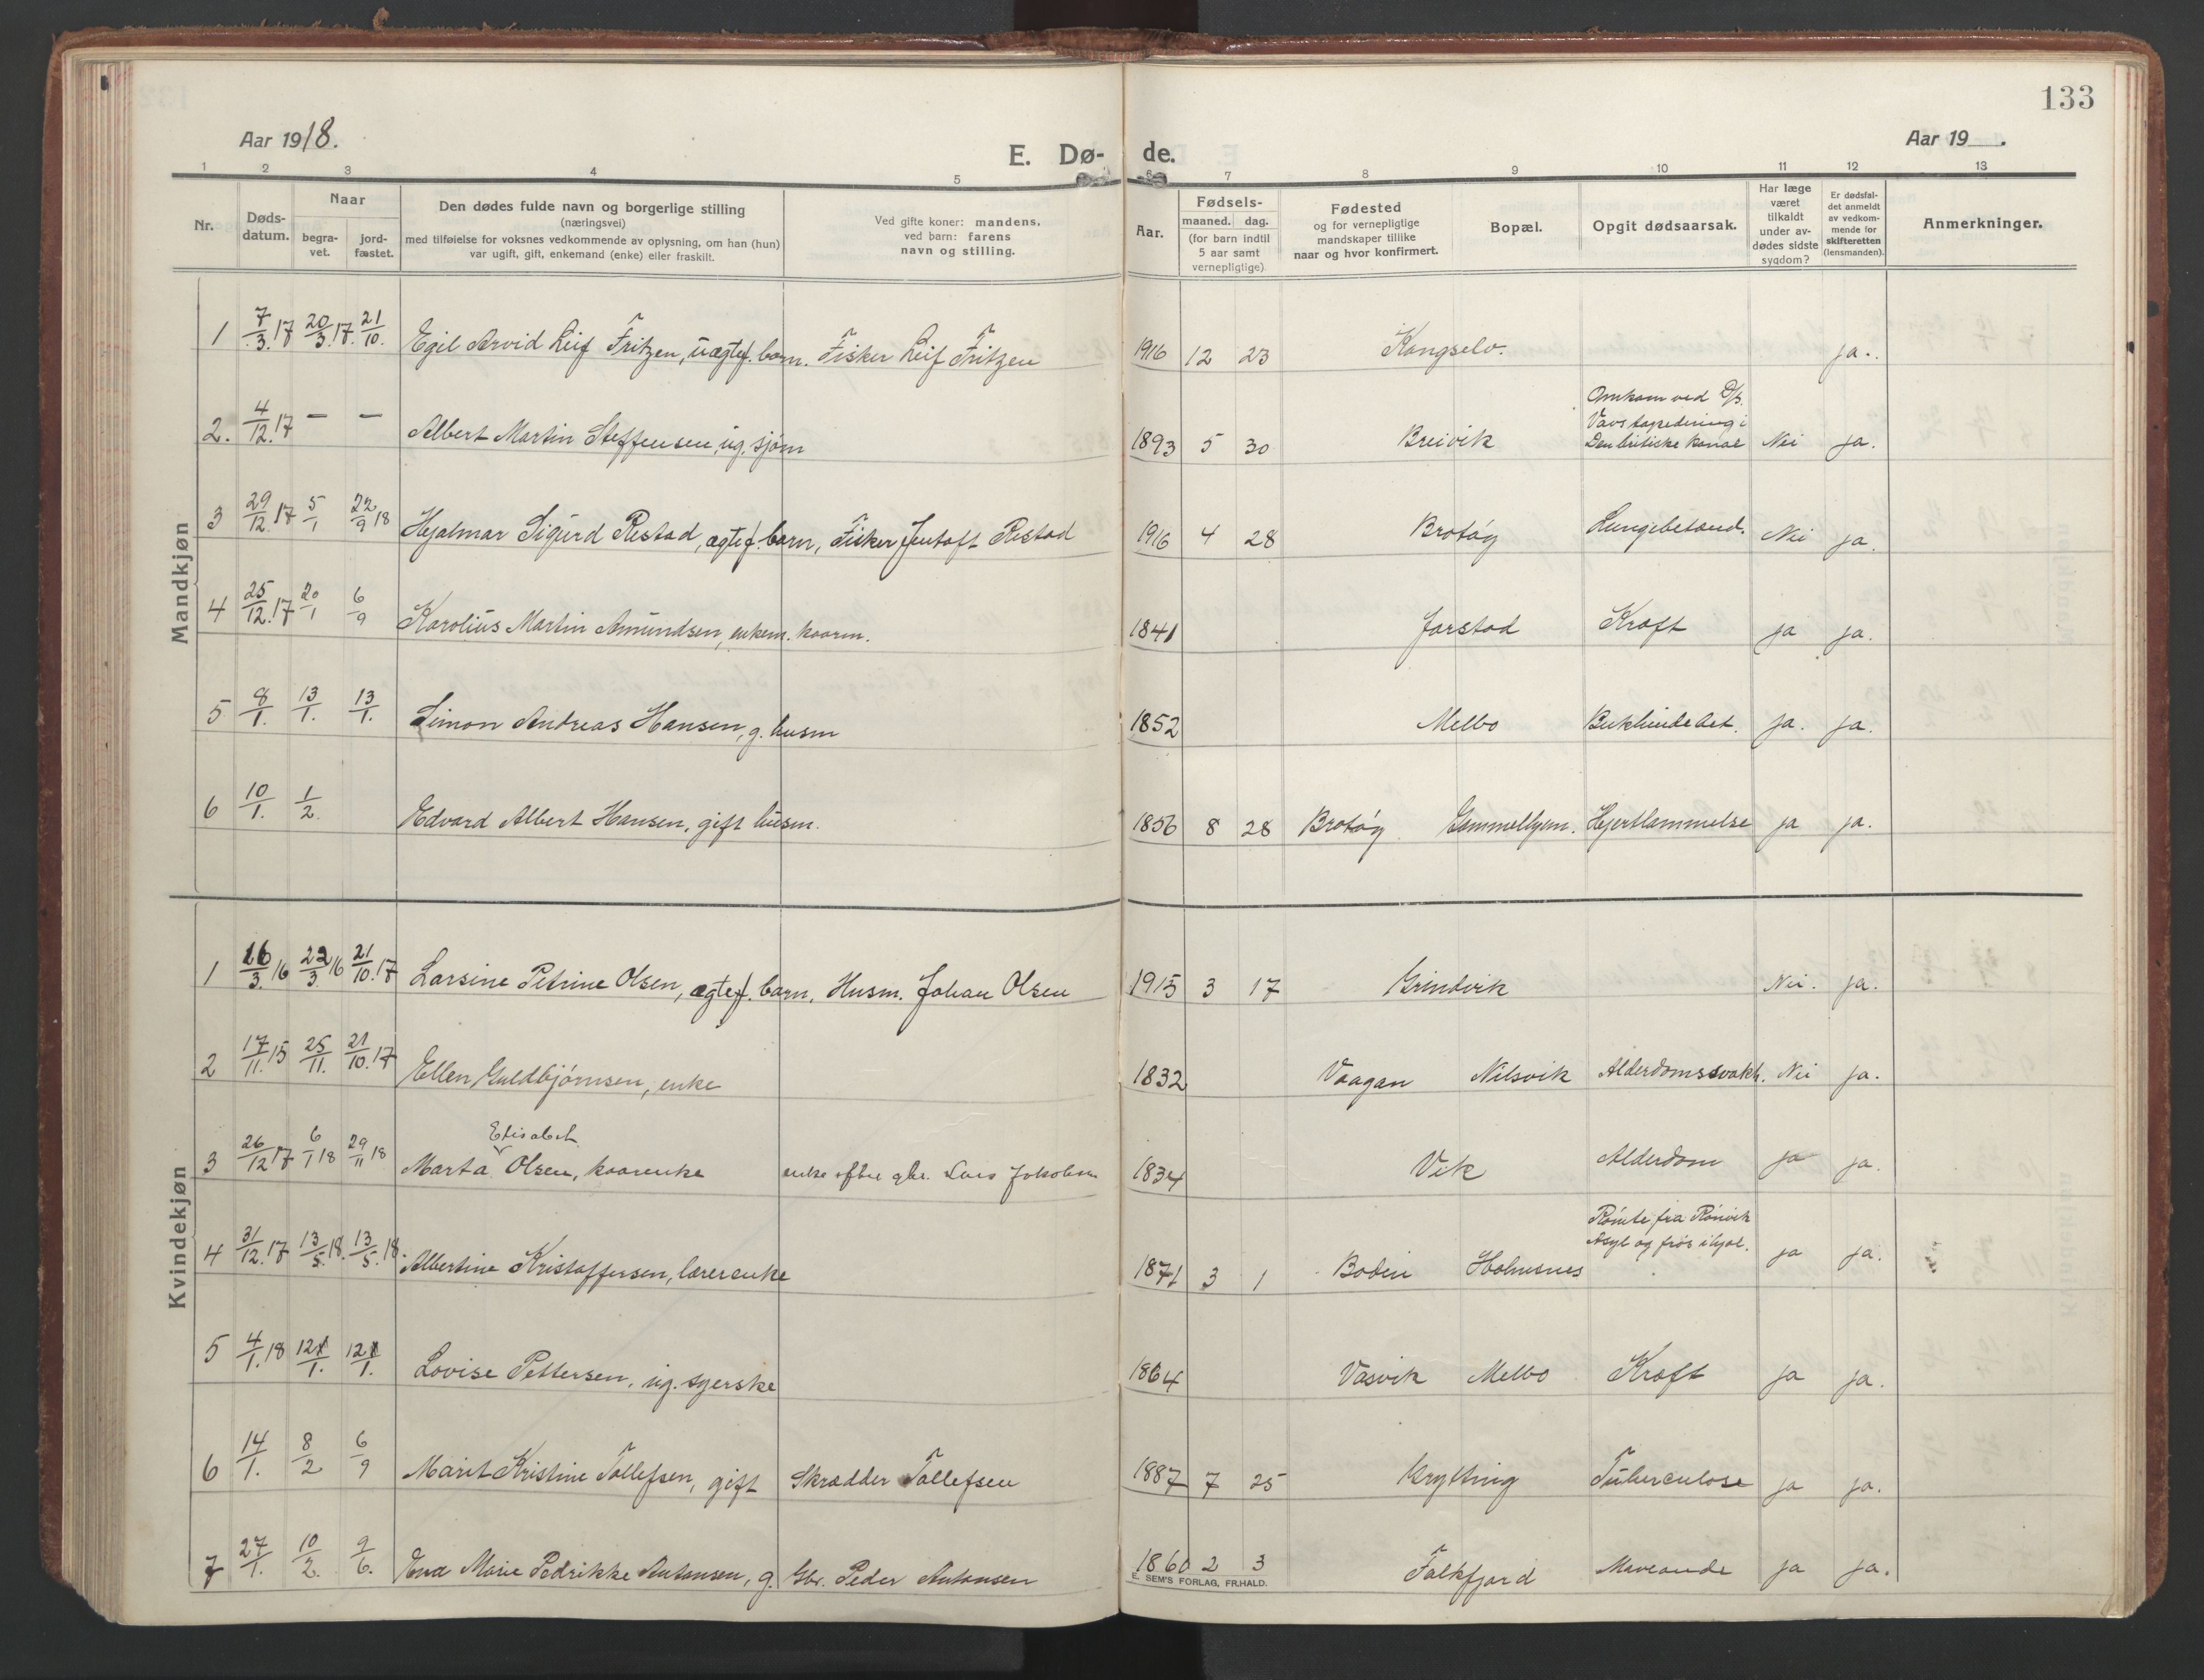 133
Aar 1918.
E. Dø-
de.
Aar 19 .
1 2 3 4 5 6 7 8 9 10 11 12 13
Nr.
Døds-
datum.
Naar
begra-
vet.
jord-
fæstet.
Den dødes fulde navn og borgerlige stilling
(næringsvei)
med tilføielse for voksnes vedkommende av oplysning, om han (hun)
var ugift, gift, enkemand (enke) eller fraskilt.
Ved gifte koner: mandens,
ved barn: farens
navn og stilling.
Aar.
Fødsels-
maaned. dag.
(for barn indtil
5 aar samt
vernepligtige)
Fødested
og for vernepligtige
mandskaper tillike
naar og hvor konfirmert.
Bopæl.
Opgit dødsaarsak.
Har læge
været
tilkaldt
under av-
dødes sidste
sygdom?
Er dødsfal-
det anmeldt
av vedkom-
mende for
skifteretten
(lensmanden).
Anmerkninger.
Mandkjøn
1 7/3.17 20/3.17. 21/10. Egil Arvid Leif Fritzen, uægtef. barn. Fisker Leif Fritzen 1916 12 23 Kongselv. ja.
2. 4/12.17 — — Albert Martin Steffensen, ug. sjøm 1893 5 30 Breivik
Omkom ved D/S.
Vavs torpedering i
Den britiske kanal Nei ja.
3 29/12.17 5/1 22/9 18 Hjalmar Sigurd Restad, ægtef. barn, Fisker Jentoft Restad 1916 4 28 Brotøy Lungebetænd. Nei ja.
4 25/12.17 20/1 6/9 Karolius Martin Amundsen, enkem. kaarm. 1841 Jorstad Kræft ja ja.
5 8/1. 13/1. 13/1. Simon Andreas Hansen, g. husm 1852 Melbo Bukhindebet. ja. ja.
6 10/1. 1/2. Edvard Albert Hansen, gift husm. 1856 8 28 Brotøy Gammelgem. Hjertlammelse ja ja.
Kvindekjøn
1 16/3.16 22/3.16 21/10.17 Larsine Petrine Olsen, ægtef. barn, Husm. Johan Olsen 1915 3 17 Grindvik Nei. ja.
2 17/11.15 25/11. 21/10.17 Ellen Guldbjørnsen, enke 1832 Vaagan Nilsvik Alderdomssvakh. Nei ja.
Elisabet
3 26/12 17 6/1 18 29/11 18 Marta Olsen, kaarenke enke efter gbr. Lars Jakobsen 1834 Vik Alderdom ja ja.
4 31/12.17 13/5.18. 13/5.18. Albertine Kristoffersen, lærerenke 1871 3 1 Bodin Holmsnes
Rømte fra Rønvik
Asyl og frøs ihjel. ja ja.
5 4/1.18 12/1. 12/1. Lovise Pettersen, ug. syerske 1864 Vasvik Melbo Kræft ja ja.
6 14/1. 8/2 6/9 Marit Kristine Tollefsen, gift Skrædder Tollefsen 1887 7 25 Krytting Tuberculose ja ja.
7 27/1. 10/2. 9/6. Eva Marie Pedrikke Antonsen, g. Gbr. Peder Antonsen 1860 2 3 Falkfjord Maveonde ja ja.
E. SEM'S FORLAG, FR.HALD.